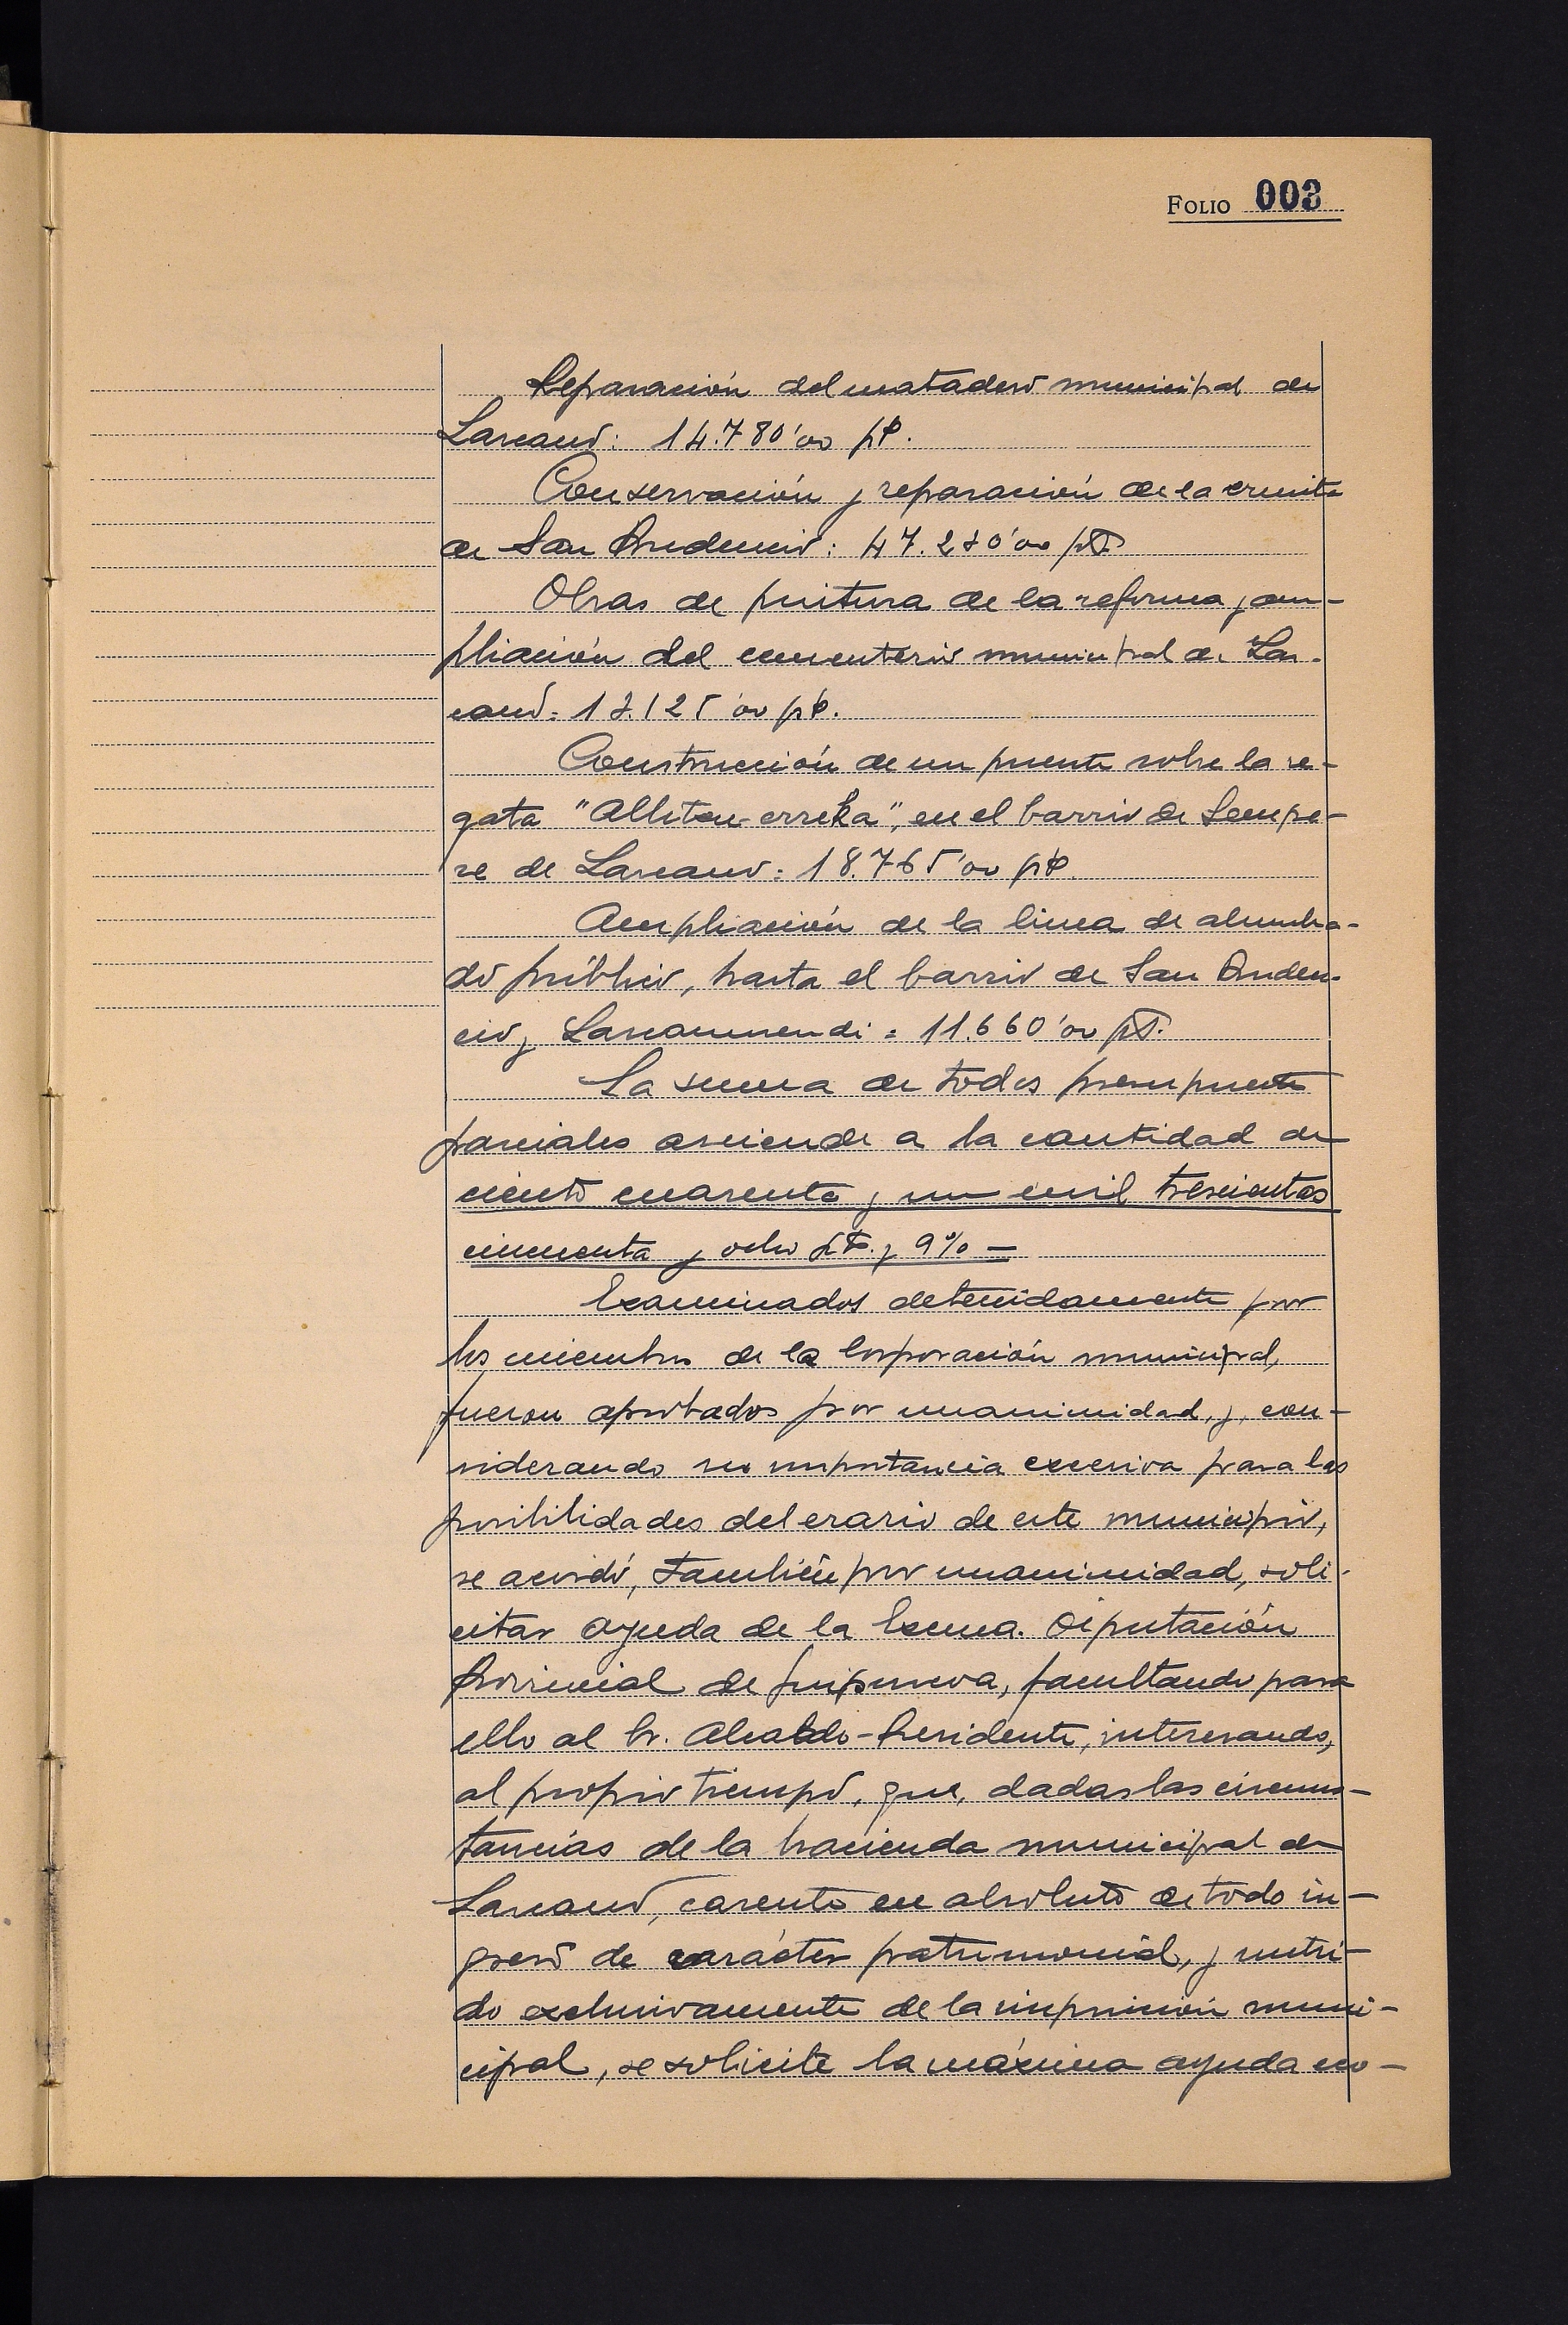 FOLIO 003
Reparación del matadero municipal de
Lazcano: 14.780'00 pts.
Conservación y reparación de la ermita
de San Prudencio: 47.280'00 pts
Obras de pintura de la reforma y am-
pliación del cementerio municipal de Laz-
cano: 13.125'00 pts.
Construcción de un puente sobre la re-
gata "Allitzu-erreka", en el barrio de Sempe-
re de Lazcano: 18.765'00 pts.
Ampliación de la linea de alumbra-
do público, hasta el barrio de San Pruden-
cio y Lazcanomendi: 11.660'00 pts.
La suma de todos presupuestos
parciales asciende a la cantidad de
ciento cuarenta y un mil trescientas
cincuenta y ocho pts. y 9% —
Examinados detenidamente por
los miembros de la Corporación municipal,
fueron aprobados por unanimidad, y, con-
siderando su importancia excesiva para las
posibilidades del erario de este municipio,
se acordó, también por unanimidad, soli-
citar ayuda de la Excma. Diputación
Provincial de Guipuzcoa, facultando para
ello al Sr. Alcalde-Presidente, interesando,
al propio tiempo, que, dadas las circuns-
tancias de la hacienda municipal de
Lazcano, carente en absoluto de todo in-
greso de carácter patrimonial, y nutri-
do exclusivamente de la imposición muni-
cipal, se solicite la máxima ayuda eco-